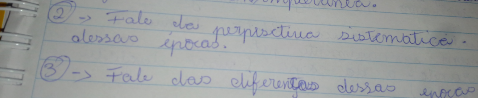 2 -> Fale da perpisctiva sistomática.
dessas épocas.
3 -> Fale das diferenças dessas épocas